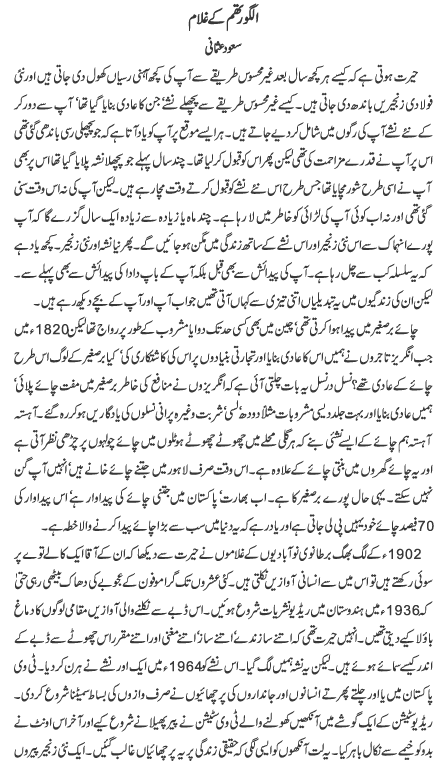 الگورتھم کے غلام
سعود عثمانی
حیرت ہوتی ہے کہ کیسے ہر کچھ سال بعد غیر محسوس طریقے سے آپ کی کچھ آہنی رسیاں کھول دی جاتی ہیں اور نئی
فولادی زنجیریں باندھ دی جاتی ہیں۔ کیسے غیر محسوس طریقے سے پچھلے نشے‘ جن کا عادی بنایا گیا تھا‘ آپ سے دور کر
کے نئے نشے آپ کی رگوں میں شامل کر دیے جاتے ہیں۔ ہر ایسے موقع پر آپ کو یاد آتا ہے کہ جو پچھلی رسی باندھی گئی تھی
اس پر آپ نے قدرے مزاحمت کی تھی لیکن پھر اس کو قبول کر لیا تھا۔ چند سال پہلے جو پچھلا نشہ پلایا گیا تھا اس پر بھی
آپ نے اسی طرح شور مچایا تھا جس طرح اس نئے نشے کو قبول کرتے وقت مچا رہے ہیں۔ لیکن آپ کی نہ اس وقت سنی
گئی تھی اور نہ اب کوئی آپ کی لڑائی کو خاطر میں لا رہا ہے۔ چند ماہ یا زیادہ سے زیادہ ایک سال گزرے گا کہ آپ
پورے انہماک سے اس نئی زنجیر اور اس نشے کے ساتھ زندگی میں مگن ہو جائیں گے۔ پھر نیا نشہ اور نئی زنجیر۔ کچھ یاد ہے
کہ یہ سلسلہ کب سے چل رہا ہے۔ آپ کی پیدائش سے بھی قبل بلکہ آپ کے باپ دادا کی پیدائش سے بھی پہلے سے۔
لیکن ان کی زندگیوں میں یہ تبدیلیاں اتنی تیزی سے کہاں آتی تھیں جو اب آپ اور آپ کے بچے دیکھ رہے ہیں۔
چائے برصغیر میں پیدا ہوا کرتی تھی‘ چین میں بھی کسی حد تک دوا یا مشروب کے طور پر رواج تھا لیکن 1820ء میں
جب انگریز تاجروں نے ہمیں اس کا عادی بنایا اور تجارتی بنیادوں پر اس کی کاشتکاری کی‘ کیا برصغیر کے لوگ اس طرح
چائے کے عادی تھے؟ نسل در نسل یہ بات چلتی آئی ہے کہ انگریزوں نے منافع کی خاطر برصغیر میں مفت چائے پلائی‘
ہمیں عادی بنایا اور بہت جلد دیسی مشروبات مثلاً دودھ‘ لسی‘ شربت وغیرہ پرانی نسلوں کی یادگاریں ہو کر رہ گئے۔ آہستہ
آہستہ ہم چائے کے ایسے نشئی بنے کہ ہر گلی محلے میں چھوٹے چھوٹے ہوٹلوں میں چائے چولہوں پر چڑھی نظر آتی ہے
اور یہ چائے گھروں میں بنتی چائے کے علاوہ ہے۔ اس وقت صرف لاہور میں جتنے چائے خانے ہیں‘ انہیں آپ گن
نہیں سکتے۔ یہی حال پورے برصغیر کا ہے۔ اب بھارت‘ پاکستان میں جتنی چائے کی پیداوار ہے‘ اس پیداوار کی
70 فیصد چائے خود یہیں پی لی جاتی ہے اور یاد رہے کہ یہ دنیا میں سب سے بڑا چائے پیدا کرنے والا خطہ ہے۔
1902ء کے لگ بھگ برطانوی نوآبادیوں کے غلاموں نے حیرت سے دیکھا کہ ان کے آقا ایک کالے توے پر
سوئی رکھتے ہیں تو اس میں سے انسانی آوازیں نکلتی ہیں۔ کئی عشروں تک گراموفون کے عجوبے کی دھاک بیٹھی رہی حتیٰ
کہ 1936ء میں ہندوستان میں ریڈیو نشریات شروع ہوئیں۔ اس ڈبے سے نکلنے والی آوازیں مقامی لوگوں کا دماغ
باؤلا کیے دیتی تھیں۔ انہیں حیرت تھی کہ اتنے سازندے‘ اتنے ساز‘ اتنے مغنی اور اتنے مقرر اس چھوٹے سے ڈبے کے
اندر کیسے سمائے ہوئے ہیں۔ لیکن یہ نشہ ہمیں لگ گیا۔ اس نشے کو 1964ء میں ایک اور نشے نے ہرن کر دیا۔ ٹی وی
پاکستان میں آیا اور چلتے پھرتے انسانوں اور جانداروں کی پرچھائیوں نے صرف آوازوں کی بساط سمیٹنا شروع کر دی۔
ریڈیو سٹیشن کے ایک گوشے میں آنکھیں کھولنے والے ٹی وی سٹیشن نے پیر پھیلانے شروع کیے اور آخر اس اونٹ نے
بدو کو خیمے سے نکال باہر کیا۔ یہ لت آنکھوں کو ایسی لگی کہ حقیقی زندگی پر یہ پرچھائیاں غالب آ گئیں۔ ایک نئی زنجیر پیروں